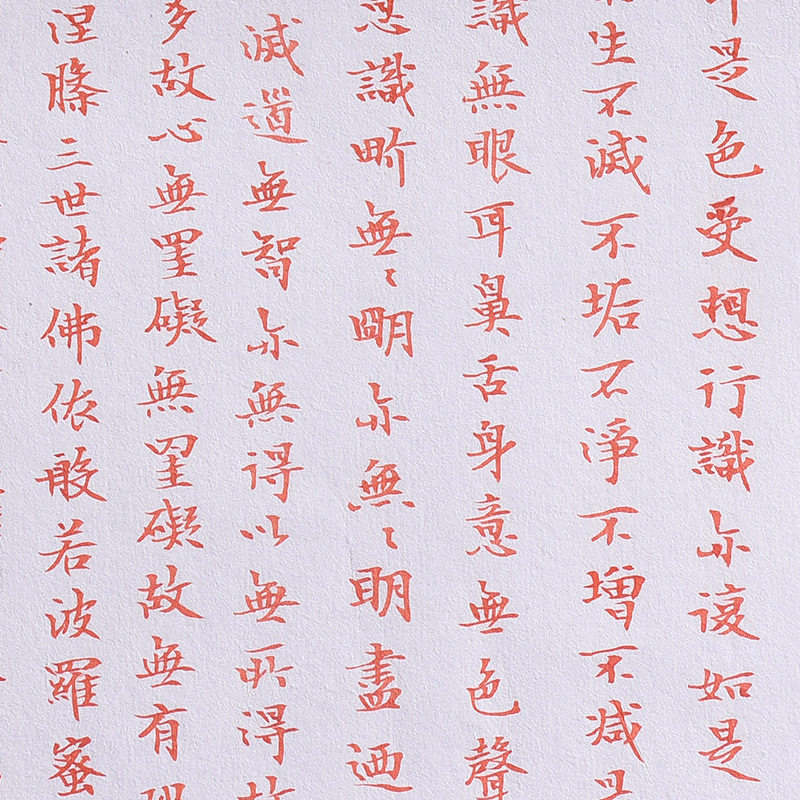 是色受想行識亦復如是
生不滅不垢不淨不增不減是
識無眼耳鼻舌身意無色聲
意識畍無〻明亦無〻明盡迺
滅道無智亦無得以無所得故
多故心無罣礙無罣礙故無有
涅槃三世諸佛依般若波羅蜜